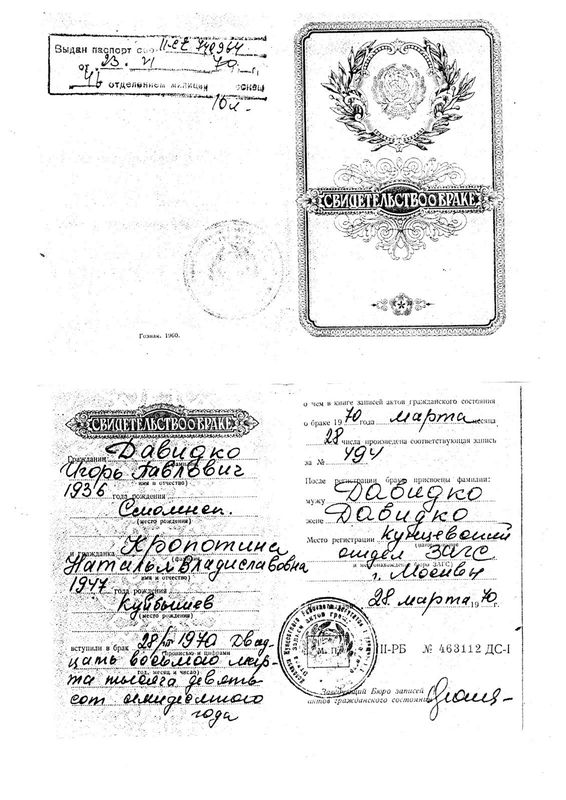 Выдан паспорт II-СЕ 740964
23. 70 г.
46 отделением милиции
10 л.
Гознак. 1960.
СВИДЕТЕЛЬСТВО О БРАКЕ
СВИДЕТЕЛЬСТВО О БРАКЕ
Гражданин Давидко
Игорь Павлович
(имя и отчество)
1936 года рождения
Смоленск.
(место рождения)
и гражданка Кропотина
Наталья Владиславовна
имя и отчество)
1947 года рождения
Куйбышев
(место рождения)
вступили в брак 28/III 1970 Двад-
(прописью и цифрами
цать восьмого мар-
год, месяц и число)
та тысяча девять-
сот семидесятого
года
о чем в книге записей актов гражданского состояния
о браке 1970 года марта месяца
28 числа произведена соответствующая запись
за № 494
После регистрации брака присвоены фамилии:
мужу Давидко
жене Давидко
Место регистрации Кунцевский
отдел ЗАГС
и местонахождение бюро ЗАГС)
г. Москвы
28 марта 1970 г.
М. П.
II-РБ № 463112 ДС-I
Заведующий Бюро записей
актов гражданского состояния